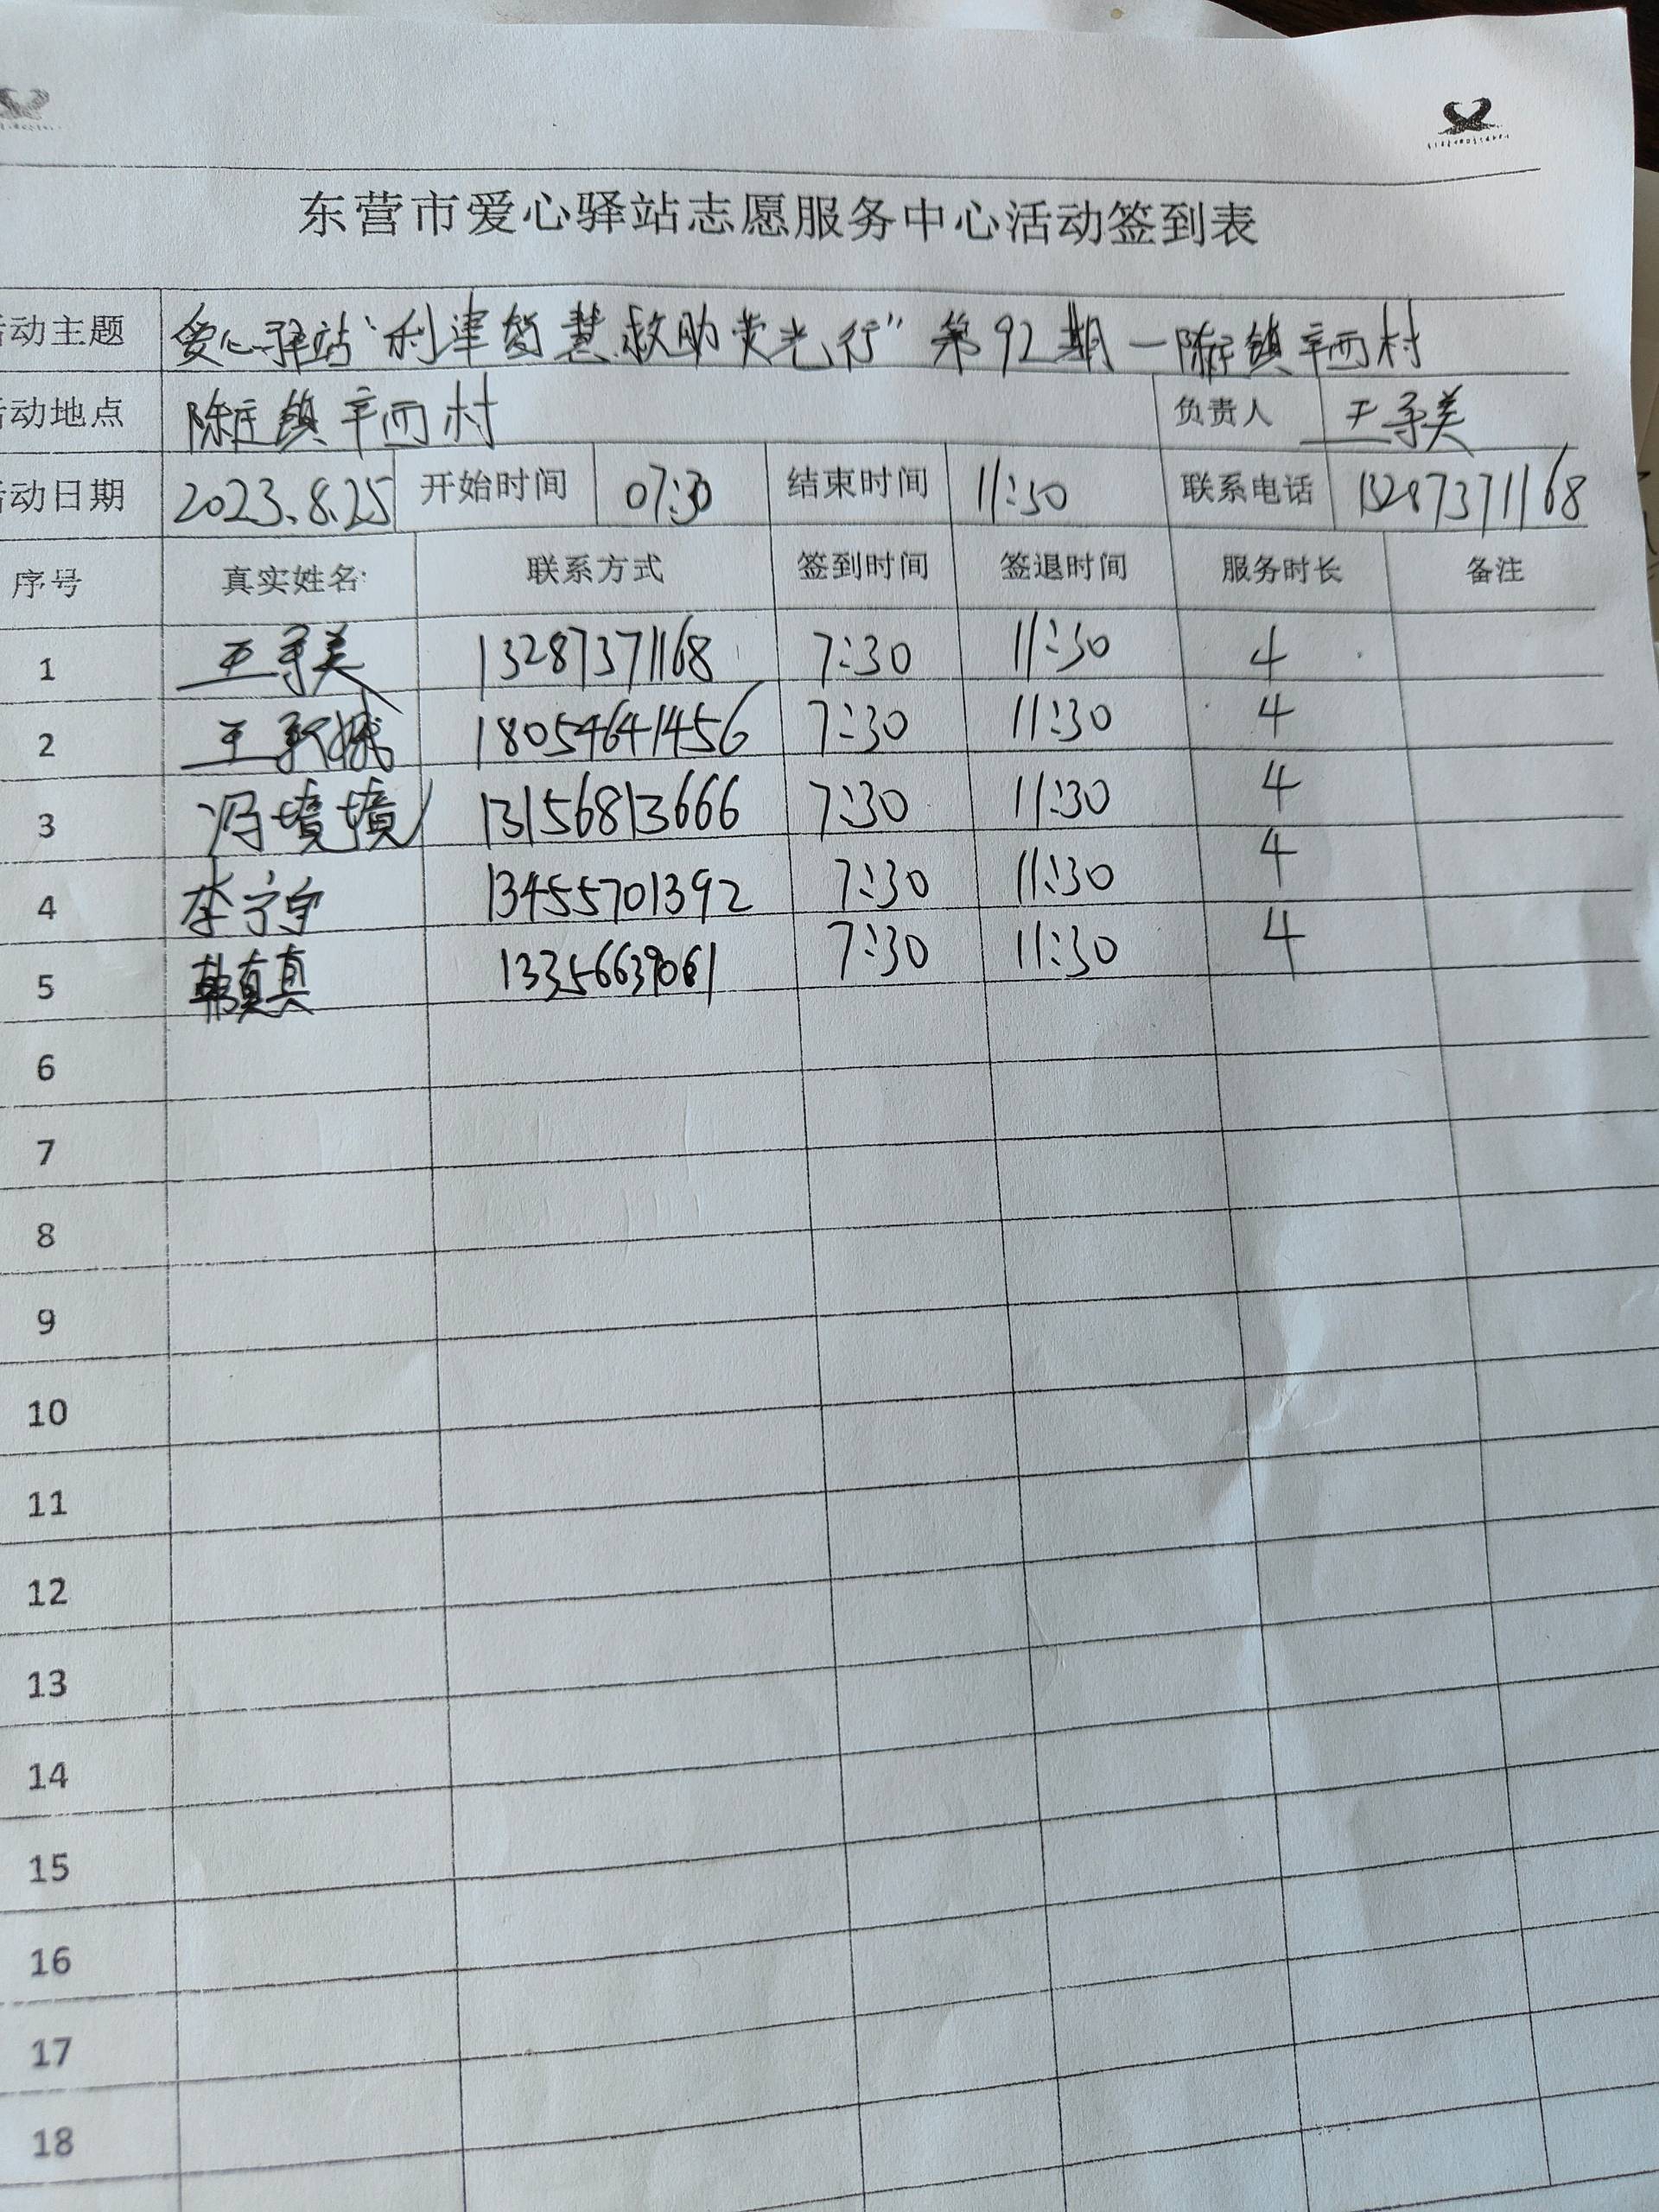 东营市爱心驿站志愿服务中心活动签到表
动主题 爱心驿站“利津智慧救助荧光行”第92期—陈庄镇辛西村
动地点 陈庄镇辛西村 负责人 王寻美
动日期 2023.8.25 开始时间 07:30 结束时间 11:30 联系电话 13287371168
序号 真实姓名 联系方式 签到时间 签退时间 服务时长 备注
1 王寻美 13287371168 7:30 11:30 4
2 王 18054641456 7:30 11:30 4
3 冯境境 13156813666 7:30 11:30 4
4 李宁宁 13455701392 7:30 11:30 4
5 韩真真 13356639061 7:30 11:30 4
6
7
8
9
10
11
12
13
14
15
16
17
18